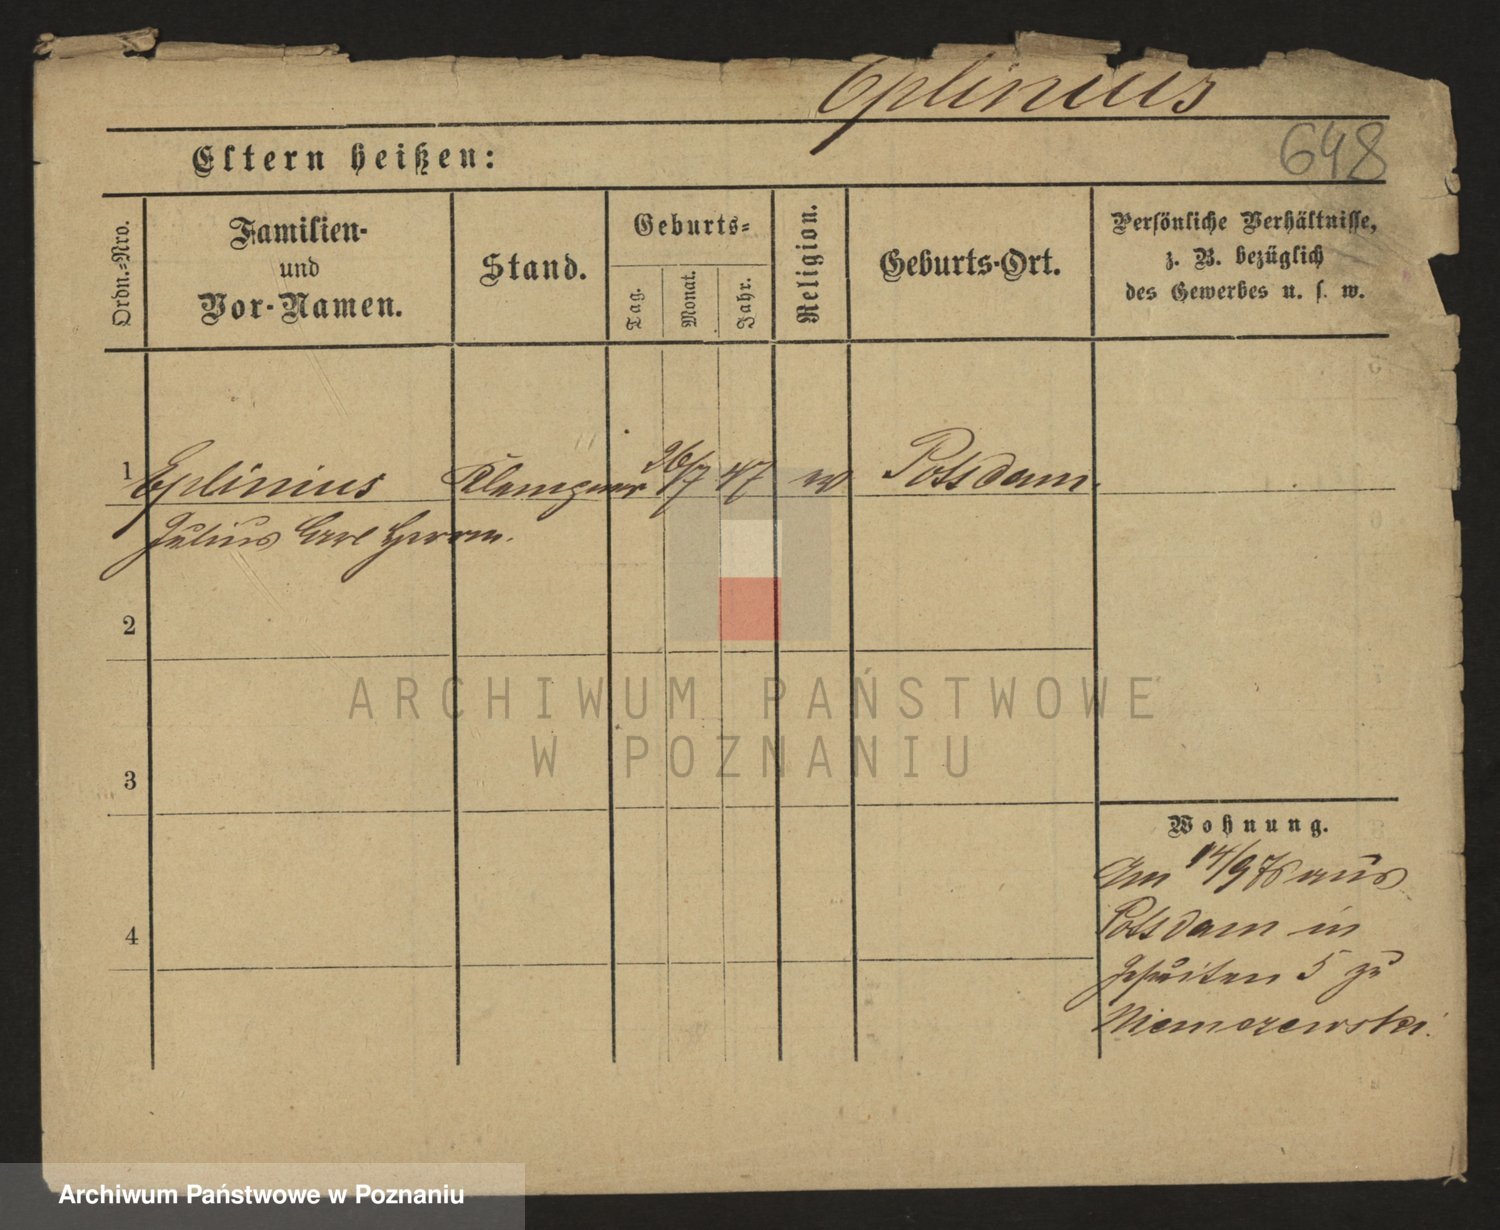 Eplinius
648
Eltern heißen:
Ordn.=Nro.
Familien-
und
Vor-Namen.
Stand.
Geburts=
Tag.
Monat.
Jahr.
Religion.
Geburts-Ort.
Persönliche Verhältnisse,
z. B. bezüglich
des Gewerbes u. s. w.
1 Eplinius Klempner 26/7 47 ev Potsdam.
Julius Carl Herrm.
2
3
4
Wohnung.
Am 14/9 76 aus
Potsdam in
Jesuiten 5 zu
Niemczewski.
ARCHIWUM PAŃSTWOWE
W POZNANIU
Archiwum Państwowe w Poznaniu